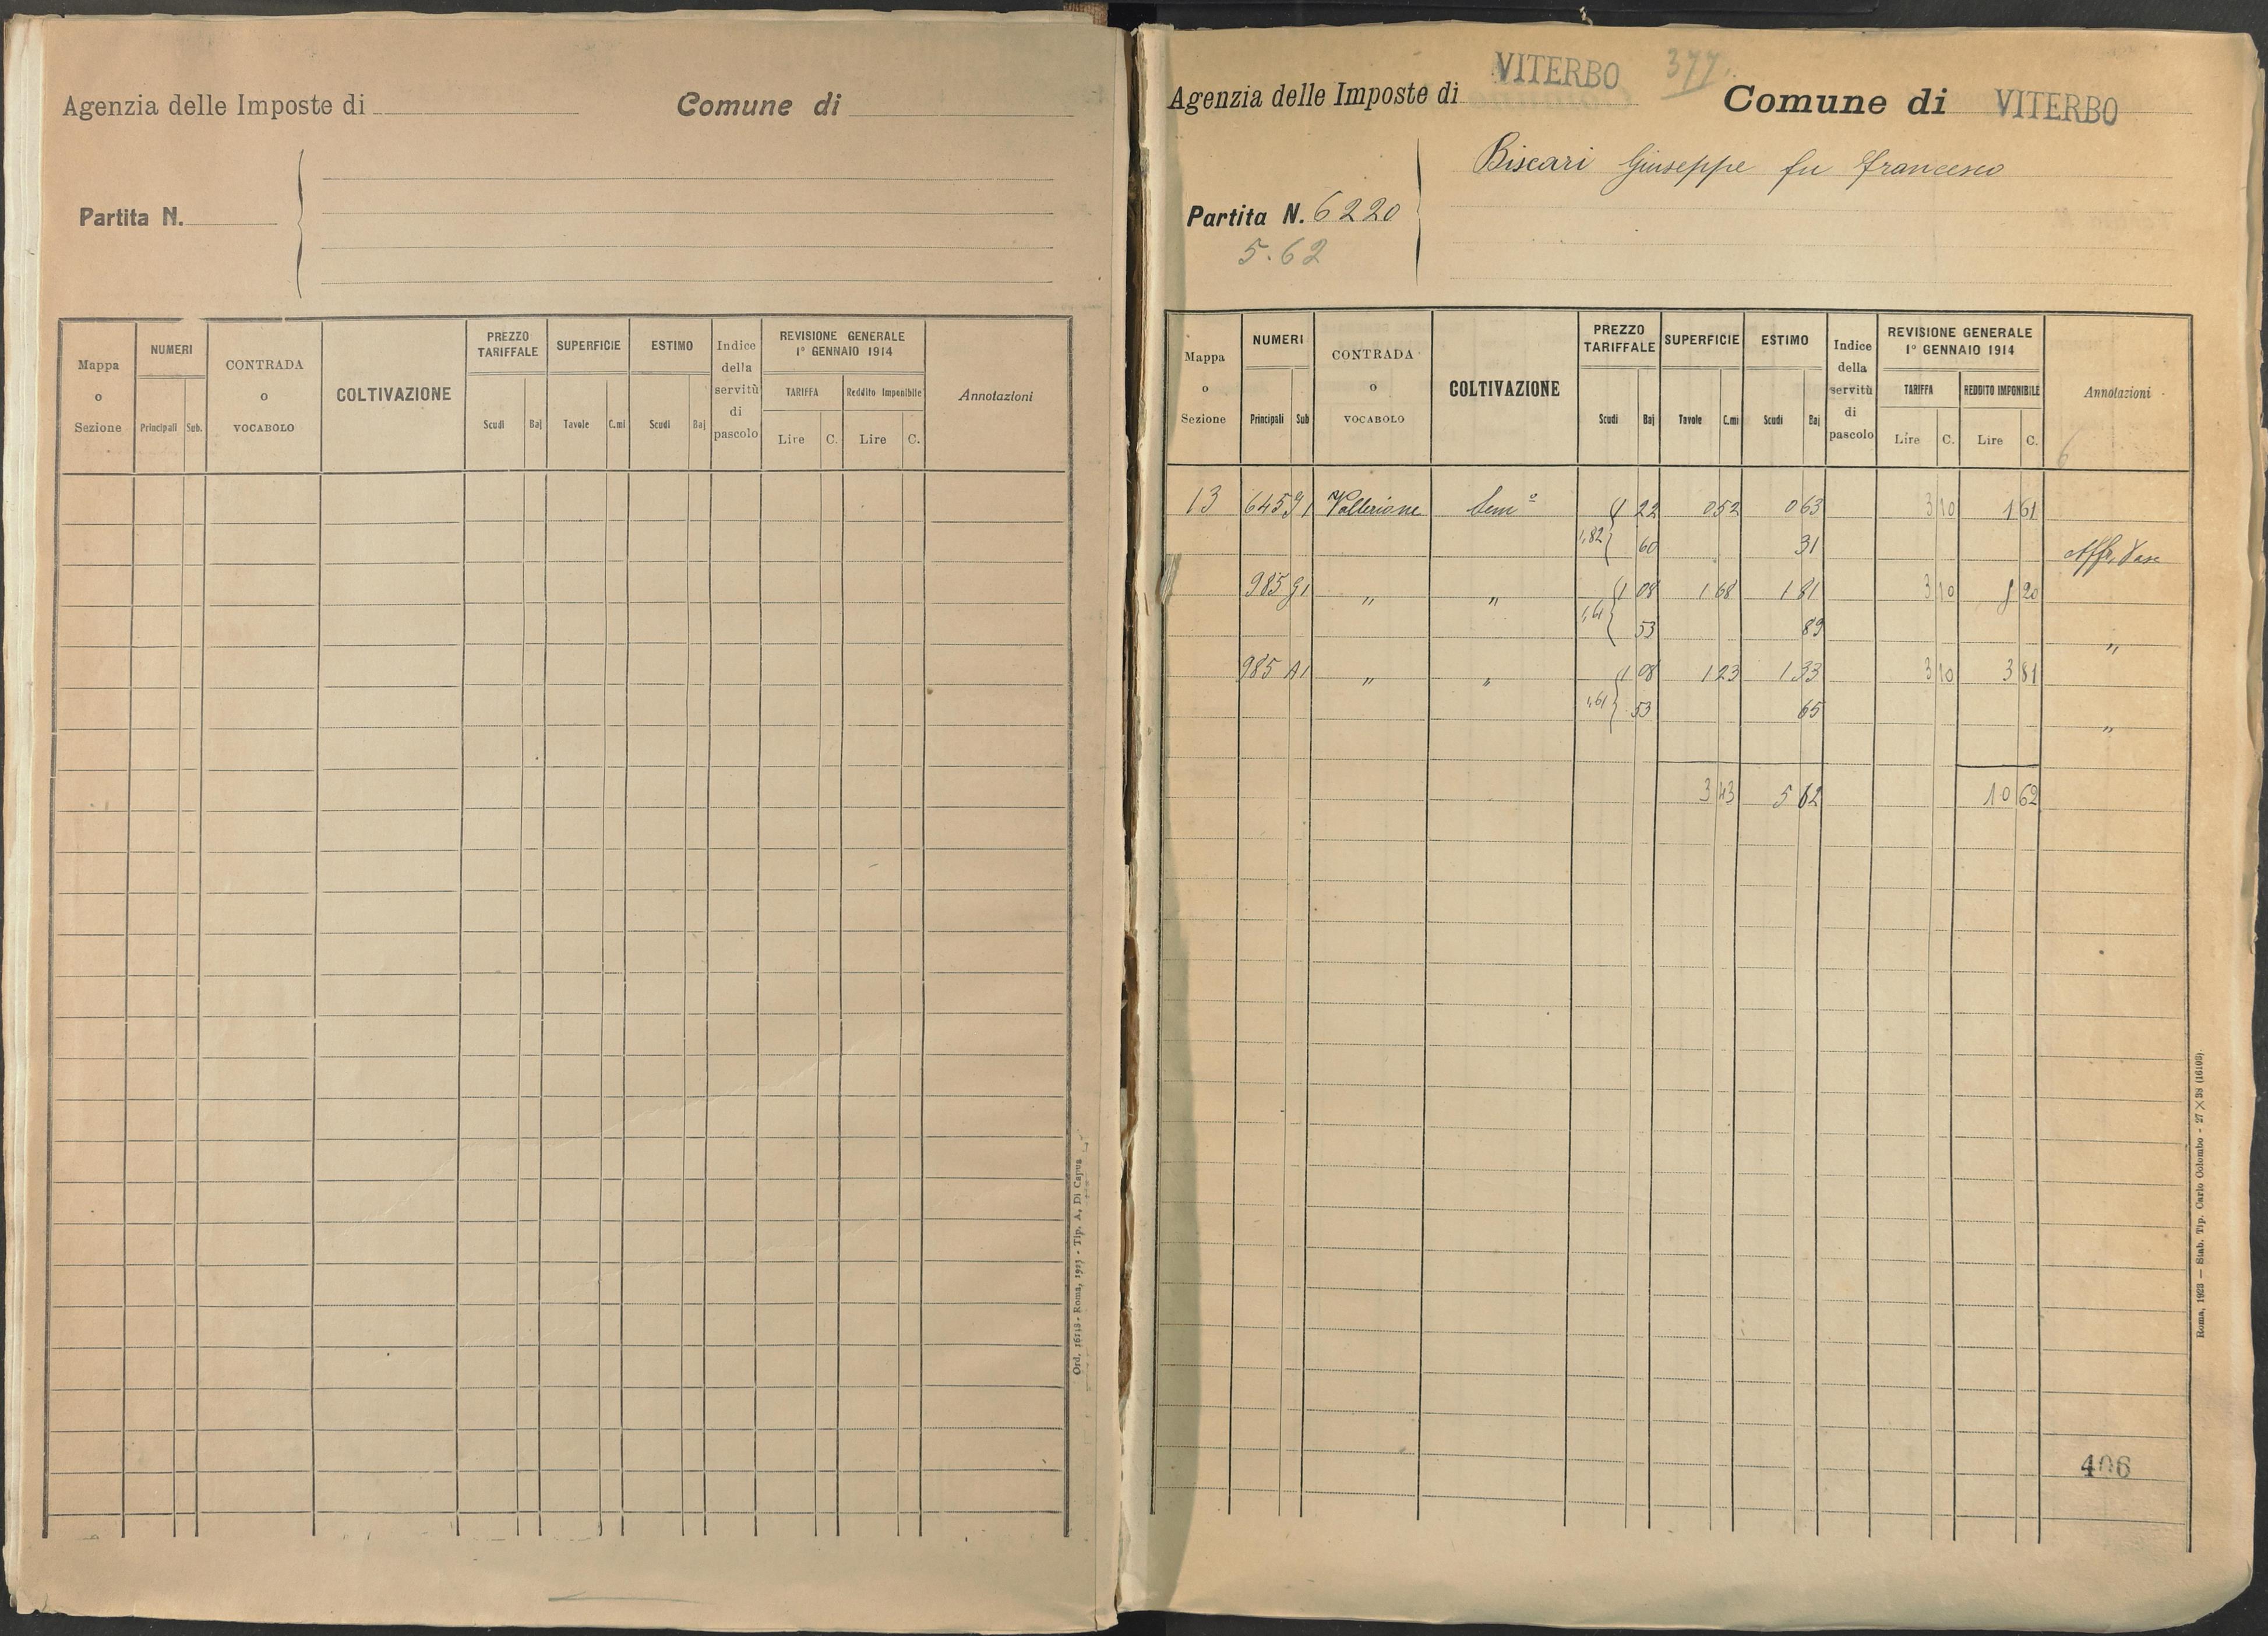 Agenzia delle Imposte di
Comune di
Partita N.
Mappa o Sezione
NUMERI
Principali Sub.
CONTRADA o VOCABOLO
COLTIVAZIONE
PREZZO TARIFFALE
Scudi Baj
SUPERFICIE
Tavole C.mi
ESTIMO
Scudi Baj
Indice della servitù di pascolo
REVISIONE GENERALE
1º GENNAIO 1914
TARIFFA
Lire C.
Reddito Imponibile
Lire C.
Annotazioni
Ord. 16118 - Roma, 1925 - Tip. A. Di Capua
Agenzia delle Imposte di VITERBO 377.
Comune di VITERBO
Biscari Giuseppe fu Francesco
Partita N. 6220
5.62
Mappa o Sezione
NUMERI
Principali Sub
CONTRADA o VOCABOLO
COLTIVAZIONE
PREZZO TARIFFALE
Scudi Baj
SUPERFICIE
Tavole C.mi
ESTIMO
Scudi Baj
Indice della servitù di pascolo
REVISIONE GENERALE
1º GENNAIO 1914
TARIFFA
Lire C.
REDDITO IMPONIBILE
Lire C.
Annotazioni
6
13 645 1 Sem º 1 22 0 52 0 63 3 10 1 61
1,82 60 31 Affr.
985 g1 " " 1 08 1 68 1 81 3 10 5 20
1,61 53 89 "
985 A1 " " 1 08 1 23 1 33 3 10 3 81
1,61 53 65 "
3 43 5 62 10 62
Roma, 1923 — Stab. Tip. Carlo Colombo - 27 X 38 (16103).
406